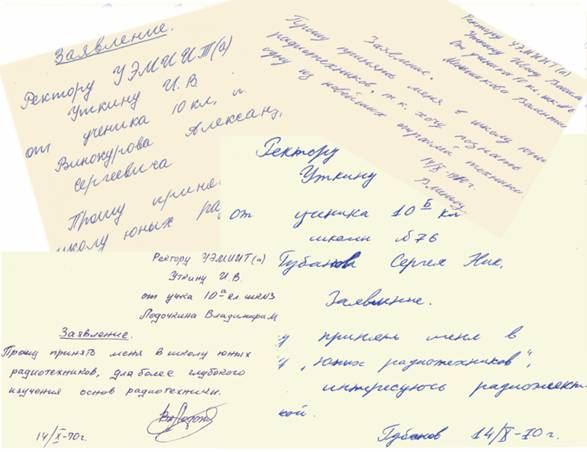 Заявление.
Ректору УЭМИИТ(а)
Уткину И.В
от ученика 10 кл.
Винокурова Александ
Сергеевича
Прошу приня
школу юных ра
Ректору УЭМИИТ(а)
Уткину
От ученика 10 кл.
Заявление.
Прошу принять меня в школу юны
радиотехников, т.к. хочу познать
одну из новейших отраслей техники
Ректору
Уткину
От ученика 10 Б кл
школы №76
Губанова Сергея Ник.
Заявление.
у принять меня в
у "юных радиотехников",
интересуюсь радиоэлект
кой.
Губанов 14/X-70г.
Ректору УЭМИИТ(а)
Уткину И.В.
от уч-ка 10а кл шк№3
Лодочкина Владимира М
Заявление.
Прошу принять меня в школу юных
радиотехников, для более глубокого
изучения основ радиотехники.
14/X-70г.